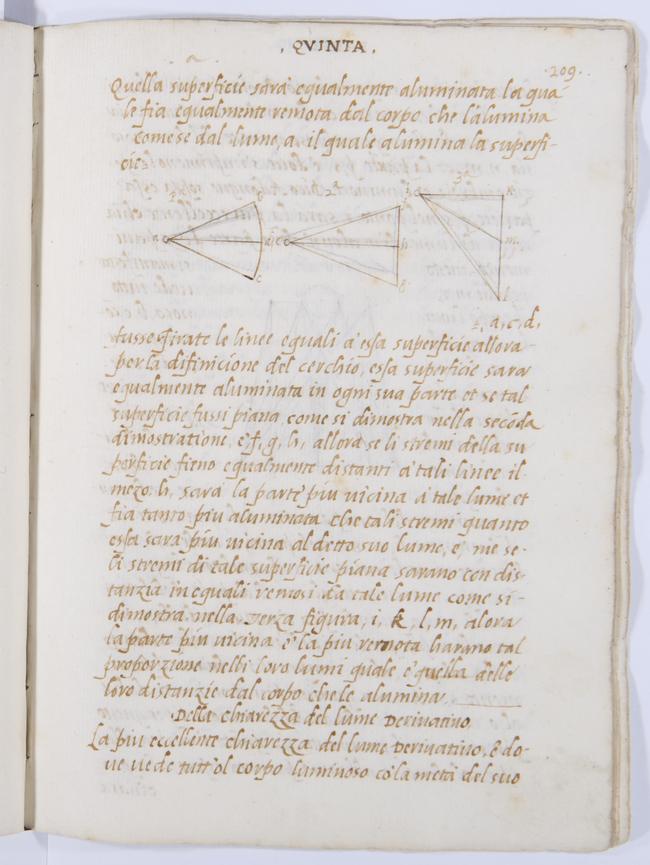 . QVINTA .
.209.
Quella superficie sara egualmente aluminata la qua
le fia egualmente remota dal corpo che l'alumina
come se dal lume, a, il quale alumina la superfi-
cie
a, c, d,
fusse girate le linee equali a essa superficie allora
per la difinicione del cerchio, essa superficie sara
egualmente aluminata in ogni sua parte et se tal
superficie fussi piana, come si dimostra nella secõda
dimostratione, e, f, g, h, allora se li stremi della su
perficie fieno egualmente distanti a tali linee il
mezo, h, sara la parte piu vicina a tale lume et
fia tanto piu aluminata che tali stremi quanto
essa sara piu vicina al detto suo lume, e, me se-
li stremi di tale superficie piana sarano con dis-
tanzia inequali remosi da tale lume come si-
dimostra nella terza figura, i, k, l, m, alora
la parte piu vicina e la piu remota harano tal
proporzione nelli loro lumi quale e quella delle
loro distanzie dal corpo che le alumina,
Della chiarezza del lume Derivativo,
La piu eccellente chiarezza del lume Derivativo, è do-
ve vede tutt'ol corpo luminoso co'la metà del suo